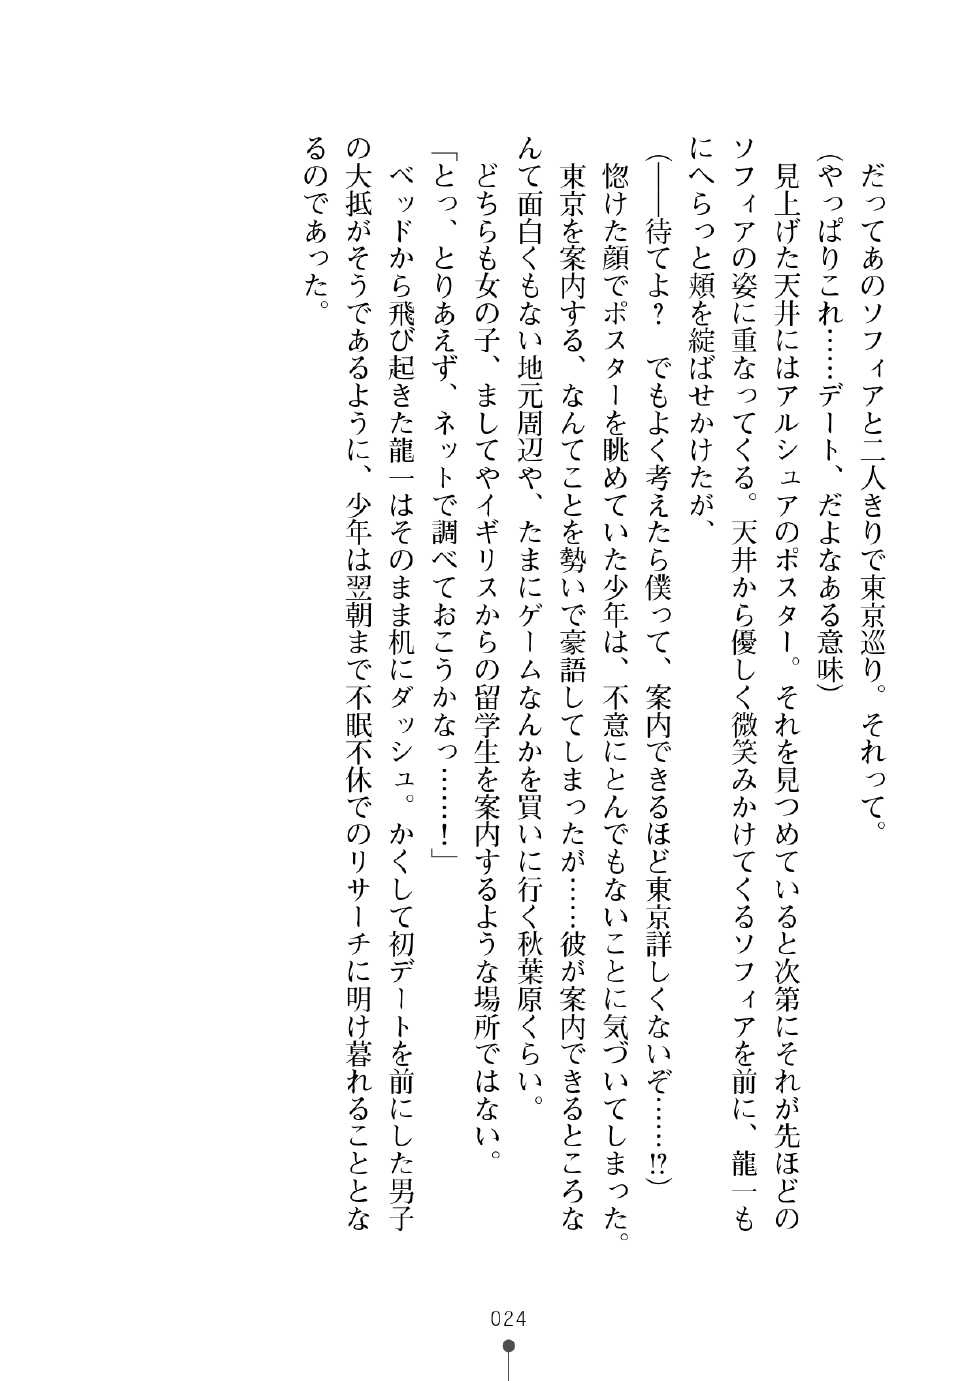 だってあのソフィアと二人きりで東京巡り。それって。
(やっぱりこれ……デート、だよなある意味)
見上げた天井にはアルシュアのポスター。それを見つめていると次第にそれが先ほどの
ソフィアの姿に重なってくる。天井から優しく微笑みかけてくるソフィアを前に、龍一も
にへらっと頬を綻ばせかけたが、
(――待てよ? でもよく考えたら僕って、案内できるほど東京詳しくないぞ……!?)
惚けた顔でポスターを眺めていた少年は、不意にとんでもないことに気づいてしまった。
東京を案内する、なんてことを勢いで豪語してしまったが……彼が案内できるところな
んて面白くもない地元周辺や、たまにゲームなんかを買いに行く秋葉原くらい。
どちらも女の子、ましてやイギリスからの留学生を案内するような場所ではない。
「とっ、とりあえず、ネットで調べておこうかなっ……!」
ベッドから飛び起きた龍一はそのまま机にダッシュ。かくして初デートを前にした男子
の大抵がそうであるように、少年は翌朝まで不眠不休でのリサーチに明け暮れることとな
るのであった。
024